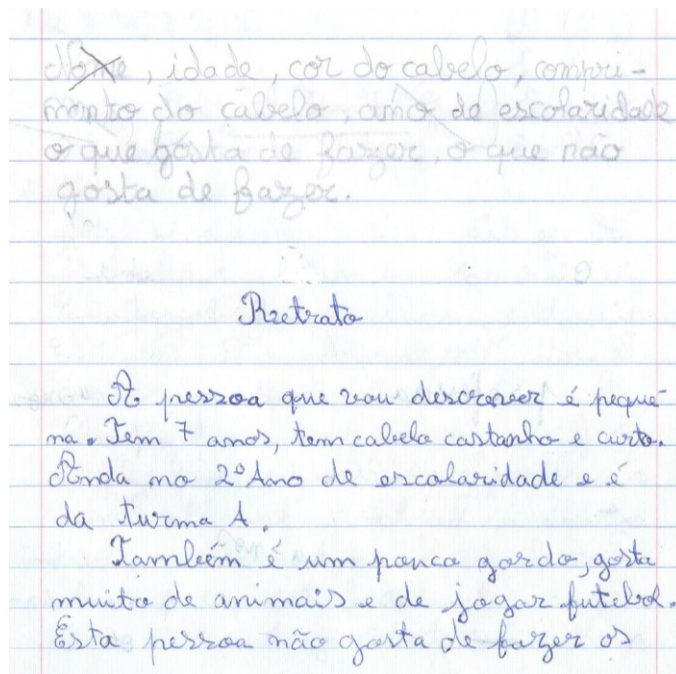 Nome, idade, cor do cabelo, compri-
mento do cabelo, ano de escolaridade
o que gosta de fazer, o que não
gosta de fazer.
Retrato
A pessoa que vou descrever é peque-
na. Tem 7 anos, tem cabelo castanho e curto.
Anda no 2º Ano de escolaridade e é
da turma A.
Também é um pouco gordo, gosta
muito de animais e de jogar futebol.
Esta pessoa não gosta de fazer os